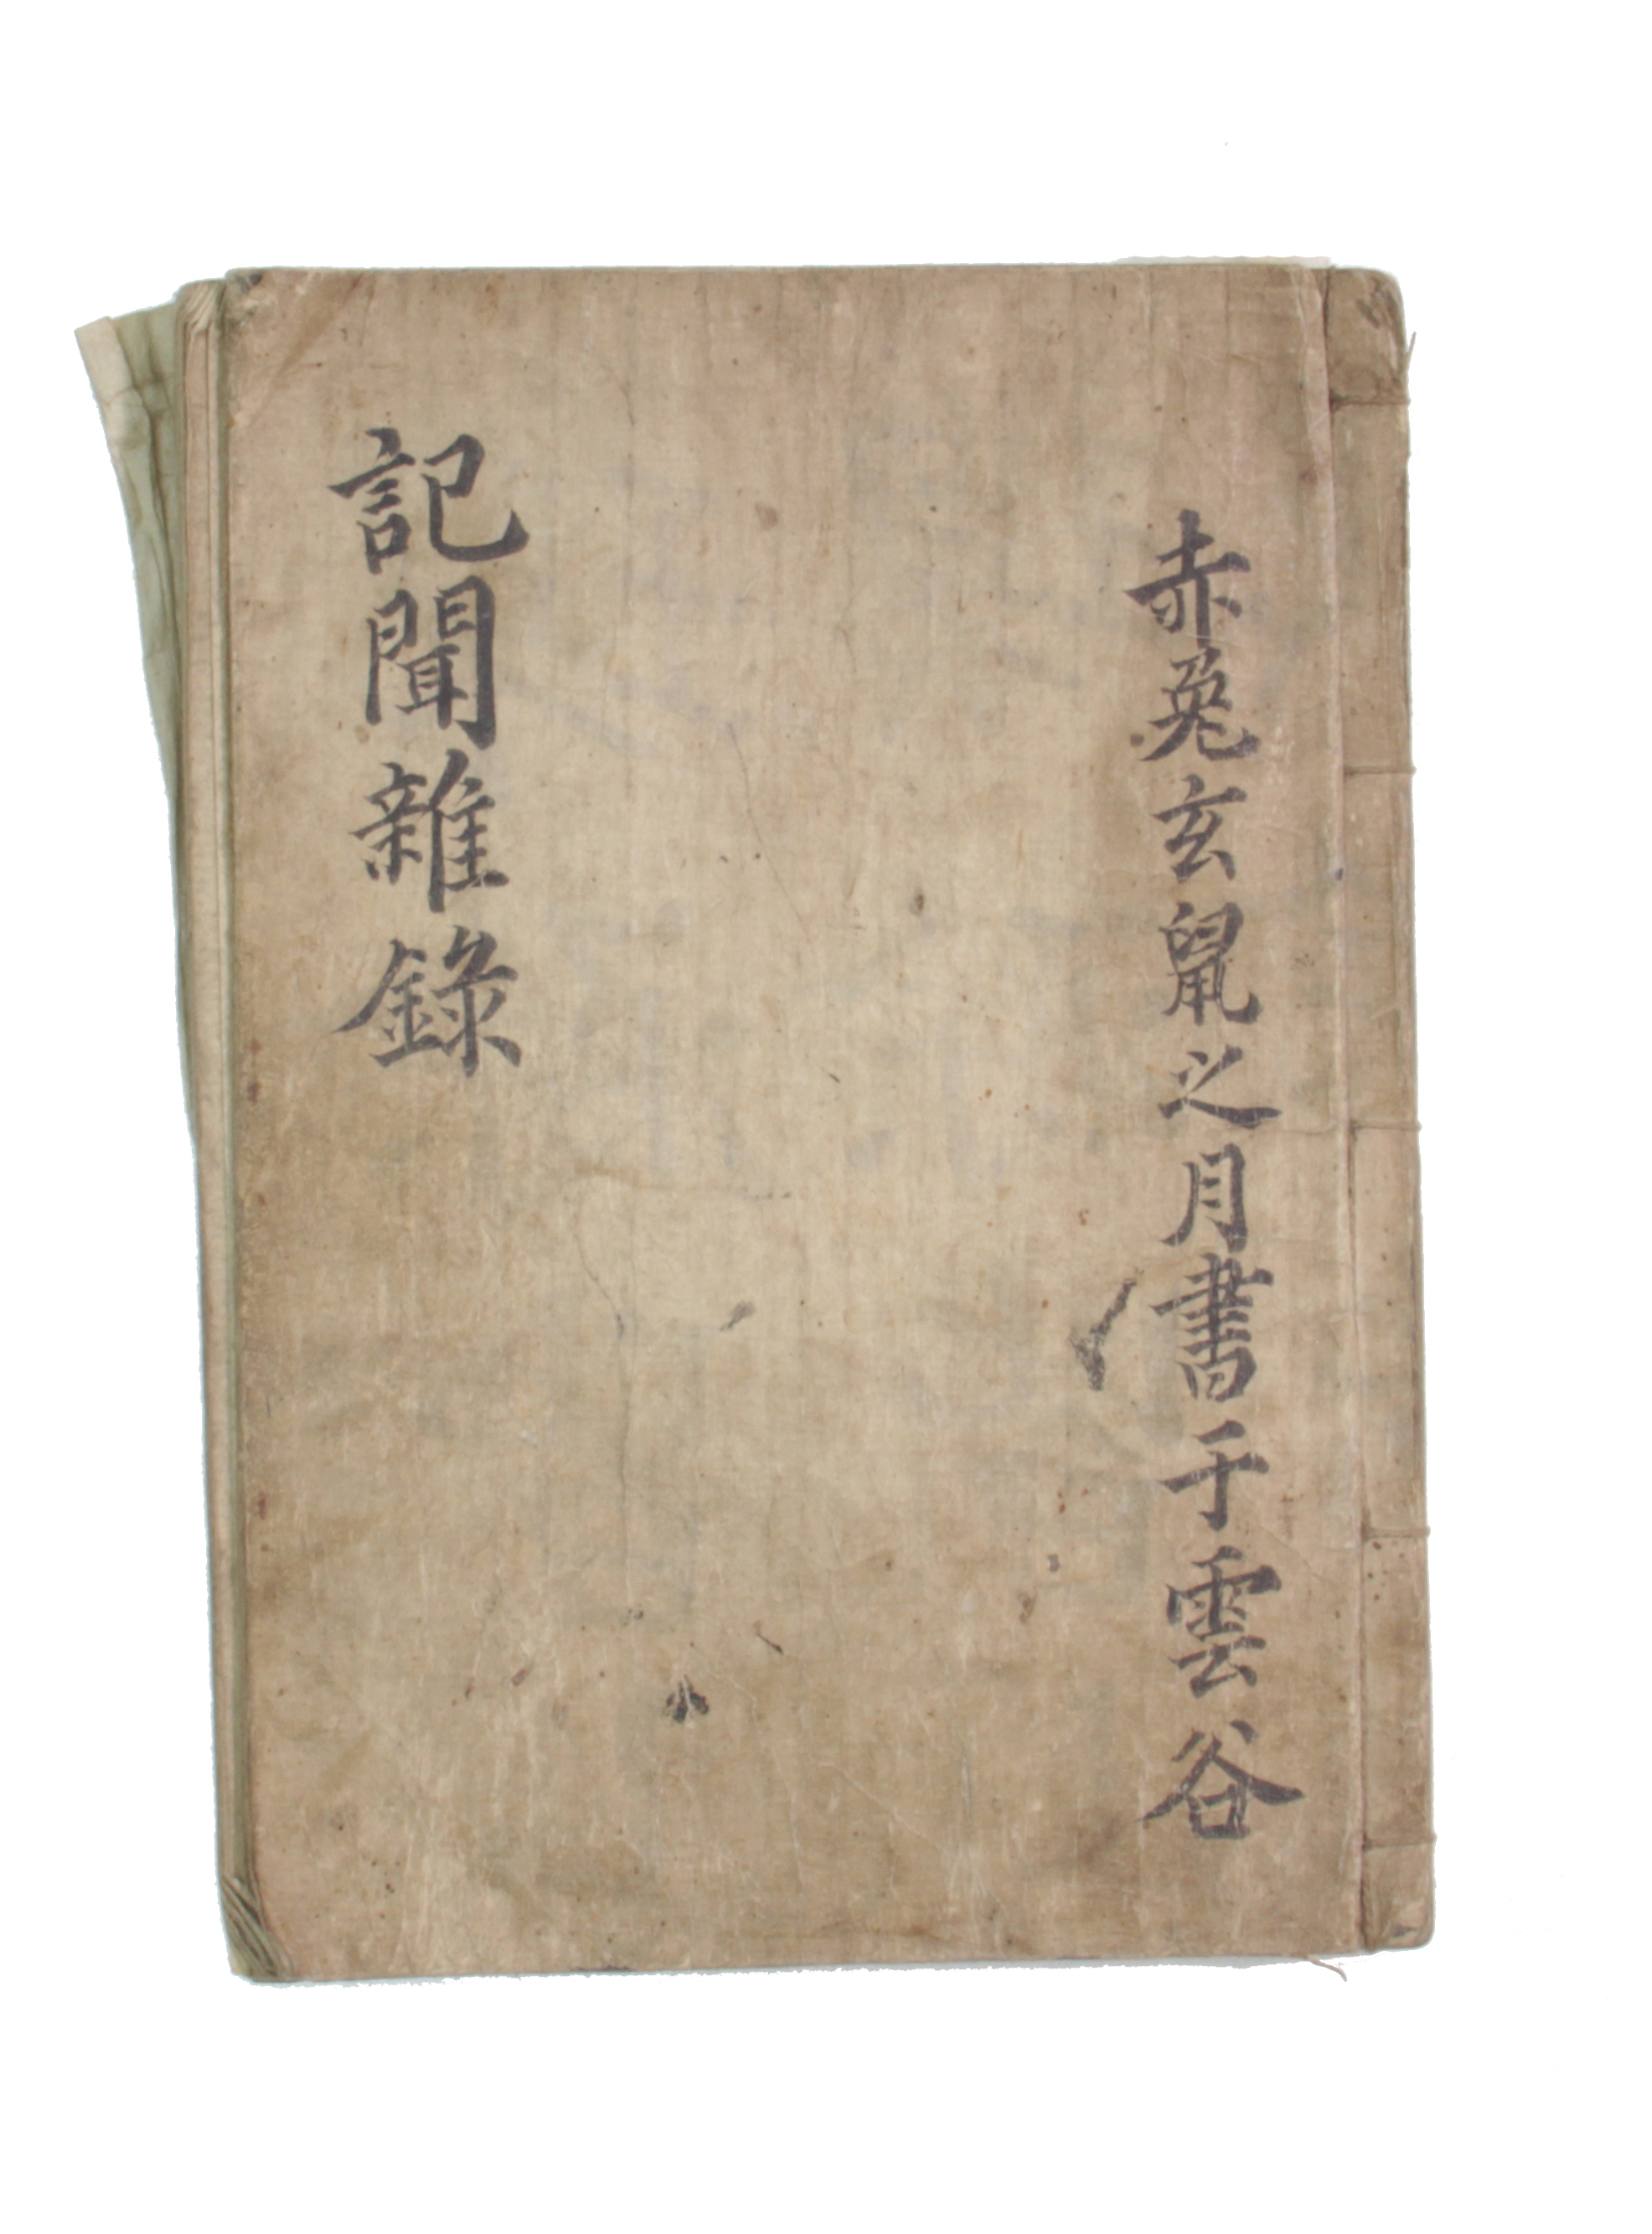 赤兎玄鼠之月書于雲谷
記聞雜錄